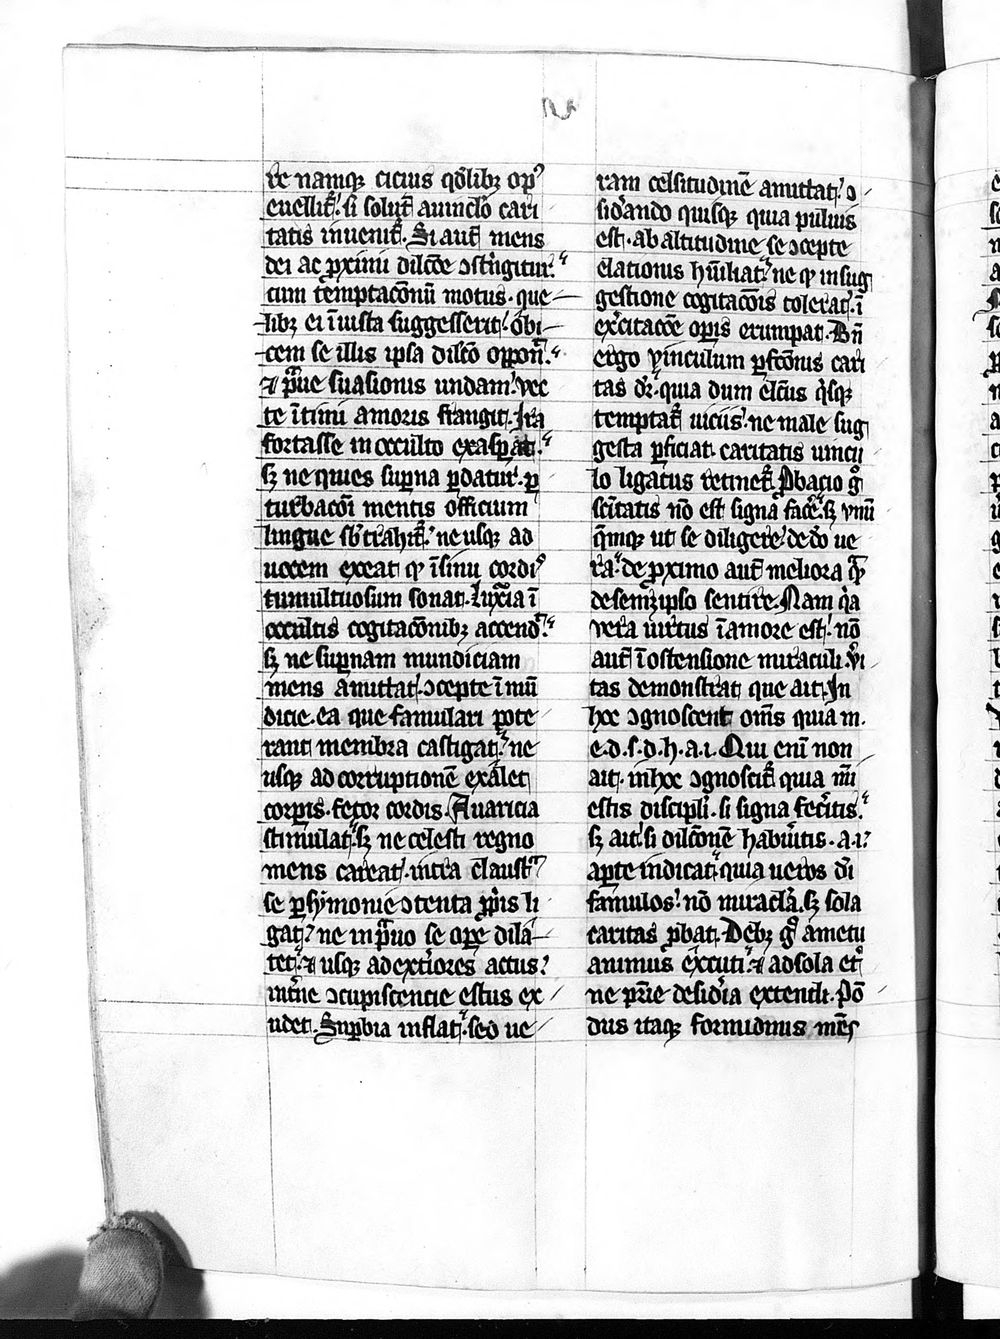 re namqꝫ cicius qd̄libꝫ opꝰ
euellit᷒.ᷓ si solut᷒ a uinclo cari
tatis inuenit᷒. Si aut̄ mens
dei ac ꝓximi dilc̄oe ↄstringitur.
cum temptac̄onū motus · que
libꝫ ei īiusta suggesserit. obi
cem se illis ipsa dilc̄o oppoīt.
⁊ praue suasionis undam. vir
te ītimi amoris frangit. Ira
fortasse in occulto exasꝑat.
sꝫ ne quies suꝑna ꝑdatur. ꝑ
turbac̄oi mentis officium
lingue sb̄trahit᷒. ne usqꝫ ad
uocem exeat qđ ī sinu cordꝰ
tumultuosum sonat. Luxuria ī
occultis cogitac̄onibꝫ accend᷒.
sꝫ ne suꝑnam mundiciam
mens amittat. ↄcepte īmū
dicie. ea que famulari pote
rant membra castigat. ne
usqꝫ ad corruptionē exalet
corporis. fetor cordis. Auaricia
stimulat. sꝫ ne celesti regno
mens careat. intra claustꝰ
se ꝑsymonie ↄtenta ꝓpriis li
gat. ne in prauo se opere dila
tet. ⁊ usqꝫ ad exteriores actus.
intⁿe ↄcupiscencie estus ex
udet. Suꝑbia inflat. sed ue
ram celsitudinē amittat. ↄ
siderando quisqꝫ quia puluis
est. ab altitudine se ↄcepte
elationis hūiliat. ne qđ in sug
gestione cogitac̄ois tolerat. ī
exercitac̄oe operis erumpat. Bn̄
ergo vinculum ꝑfc̄onis cari
tas dr̄. quia dum elc̄us qͥsqꝫ
temptat᷒ uiciis. ne male sug
gesta ꝑficiat. caritatis uincu
lo ligatus retinet᷒. Probatio gͦ
sc̄itatis nō est signa facere. sꝫ vnū
quēqꝫ ut se diligere. de do ue
ra. de ꝓximo aut̄ meliora qͣ̄
de semꝫipso sentire. Nam qͥa
vera uirtus ī amore est. nō
aut̄ ī ostensione miraculi. v̓i
tas demonstrat que ait. In
hoc ↄgnoscent om̄s quia m.
e. d. s. d. h. a. i. Qui eni non
ait. in hoc ↄgnoscit᷒ quia mī
estis discipli. si signa feceritis.
sꝫ ait. si dilc̄onē habueritis. a. i.
aꝑte indicat. quia ueros dī
famulos. nō miracula. sꝫ sola
caritas ꝓbat. Debꝫ gͦ a metu
animus excuti. ⁊ ad sola et᷒
ne patrie desideria extendi. Pō
dus itaqꝫ formidinis mēs